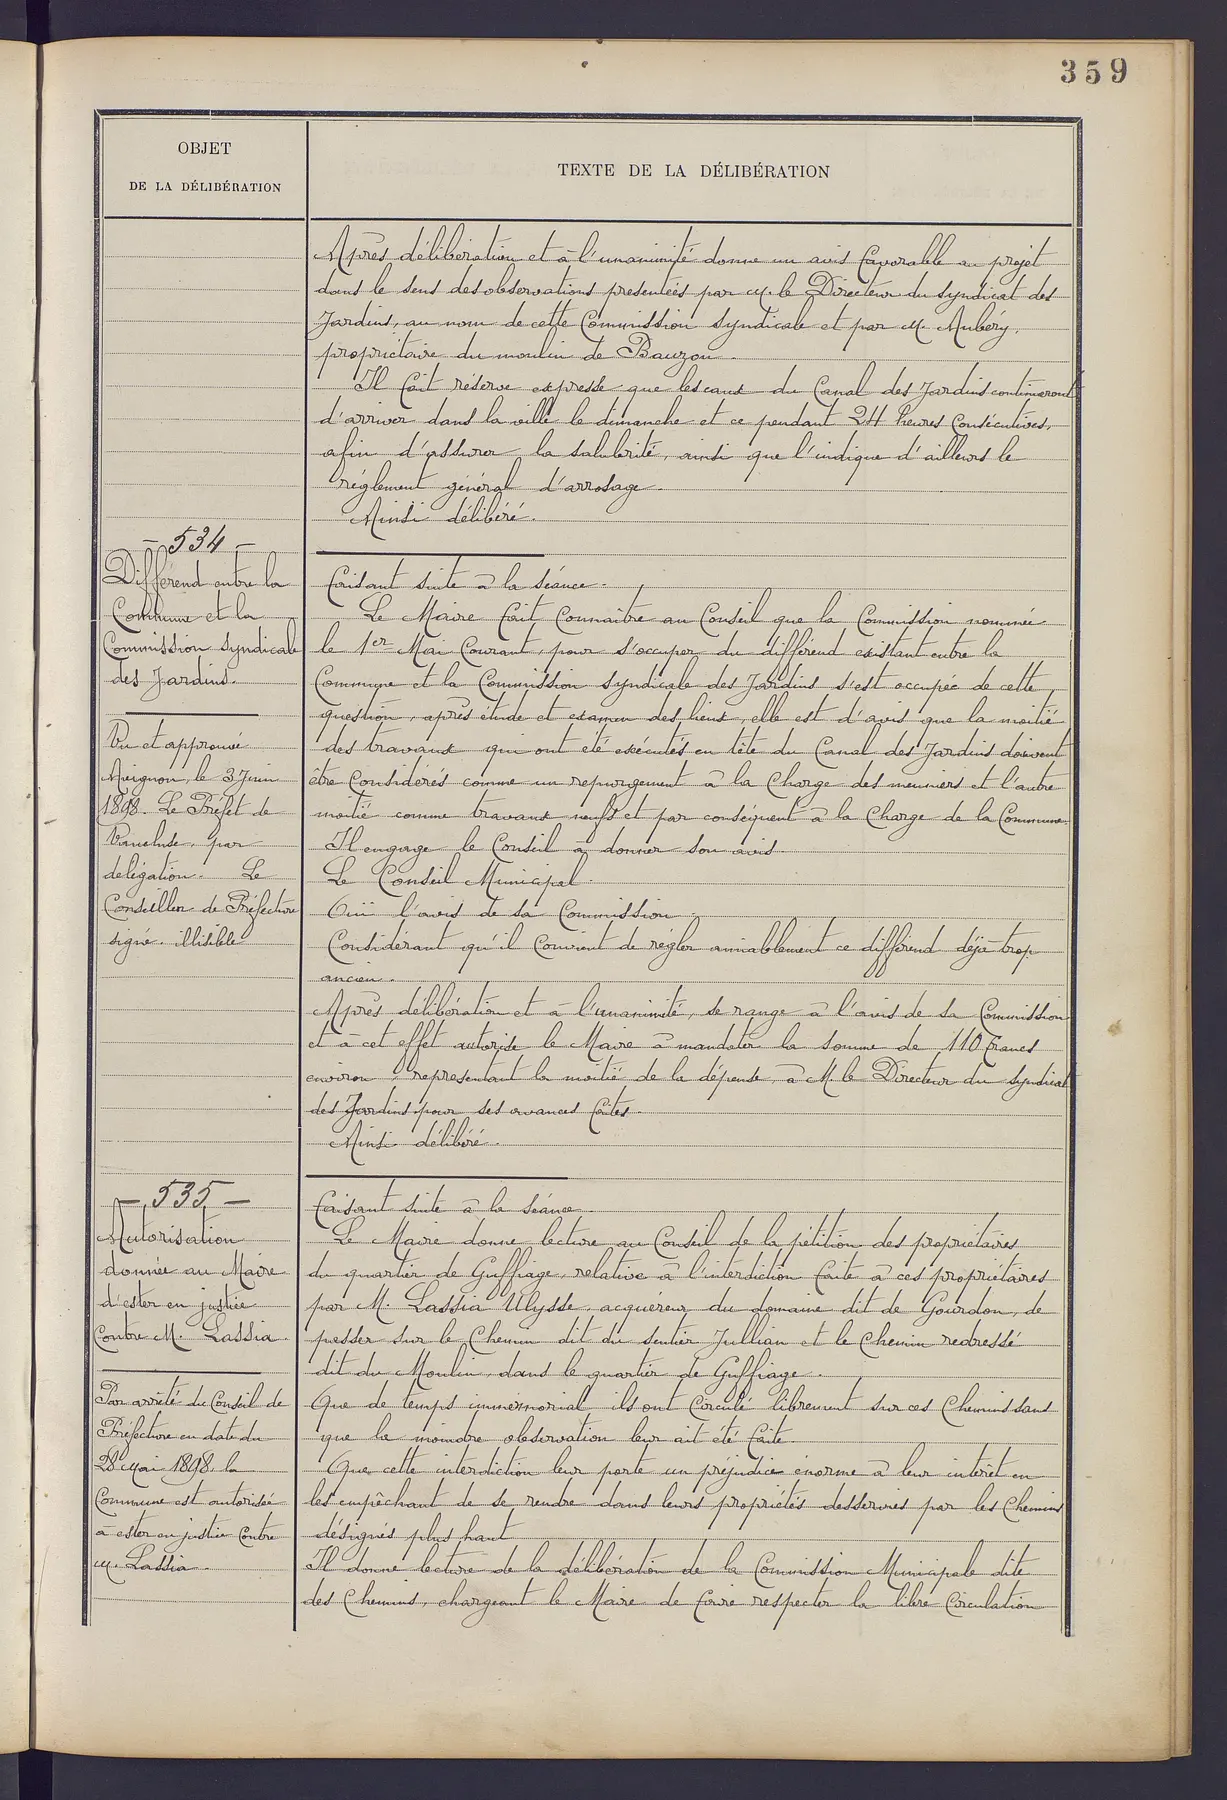 359
OBJET
DE LA DÉLIBÉRATION
TEXTE DE LA DÉLIBÉRATION
Après délibération et à l'unanimité donne un avis favorable au projet
dans le sens des observations présentées par M. le Directeur du syndicat des
Jardins, au nom de cette Commission syndicale et par M. Aubéry,
propriétaire du moulin de Bauzon.
Il fait réserve expresse que les eaux du Canal des Jardins continueront
d'arriver dans la ville le dimanche et ce pendant 24 heures Consécutives,
afin d'assurer la salubrité, ainsi que l'indique d'ailleurs le
réglement général d'arrosage.
Ainsi délibéré.
- 534 -
Différend entre la
Commune et la
Commission syndicale
des Jardins.
Vu et approuvé
Avignon, le 3 Juin
1898. Le Préfet de
Vaucluse, par
délégation. Le
Conseiller de Préfecture
signé. illisible
Faisant suite à la séance.
Le Maire fait Connaître au Conseil que la Commission nommée
le 1er Mai Courant, pour s'occuper du différend existant entre la
Commune et la Commission syndicale des Jardins s'est occupée de cette
question, après étude et examen des lieux, elle est d'avis que la moitié
des travaux qui ont été exécutés en tête du Canal des Jardins doivent
être Considérés comme un repurgement à la Charge des meuniers et l'autre
moitié comme travaux neufs et par conséquent à la Charge de la Commune.
Il engage le Conseil à donner son avis.
Le Conseil Municipal.
Ouï l'avis de sa Commission.
Considérant qu'il Convient de régler amiablement ce différend déjà trop
ancien.
Après délibération et à l'unanimité, se range à l'avis de sa Commission
et à cet effet autorise le Maire à mandater la somme de 110 francs
environ, représentant la moitié de la dépense, à M. le Directeur du syndicat
des Jardins pour ses avances faites.
Ainsi délibéré.
- 535 -
Autorisation
donnée au Maire
d'ester en justice
Contre M. Lassia.
Par arrêté du Conseil de
Préfecture en date du
28 Mai 1898, la
Commune est autorisée
à ester en justice Contre
M. Lassia.
Faisant suite à la séance.
Le Maire donne lecture au Conseil de la pétition des propriétaires
du quartier de Guffiage, relative à l'interdiction faite à ces propriétaires
par M. Lassia Ulysse, acquéreur du domaine dit de Gourdon, de
passer sur le Chemin dit du sentier Jullian et le Chemin redressé
dit du Moulin, dans le quartier de Guffiage.
Que de temps immémorial ils ont Circulé librement sur ces Chemins sans
que la moindre observation leur ait été faite.
Que cette interdiction leur porte un préjudice énorme à leur intérêt en
les empêchant de se rendre dans leurs propriétés desservies par les Chemins
désignés plus haut
Il donne lecture de la délibération de la Commission Municipale dite
des Chemins, chargeant le Maire de faire respecter la libre Circulation